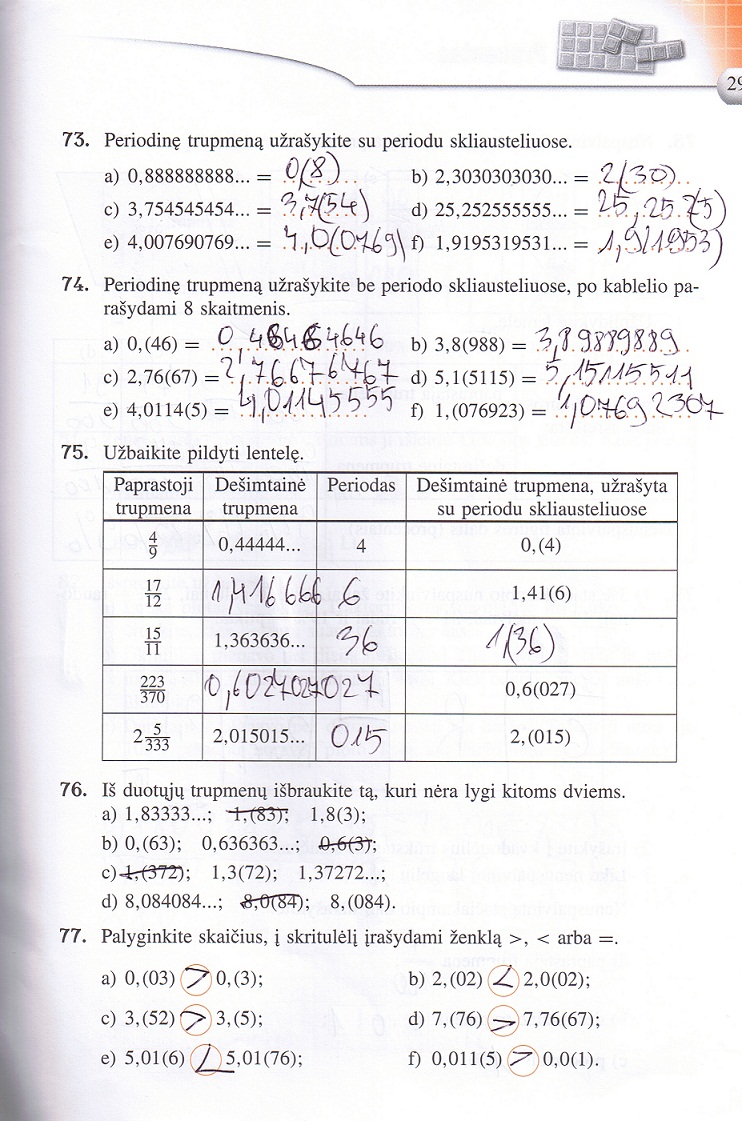 29
73. Periodinę trupmeną užrašykite su periodu skliausteliuose.
a) 0,888888888... = 0(8) b) 2,3030303030... = 2(30)
c) 3,754545454... = 3,7(54) d) 25,252555555... = 25,25 25)
e) 4,007690769... = 4,0(0769) f) 1,9195319531... = 1,9(1953)
74. Periodinę trupmeną užrašykite be periodo skliausteliuose, po kablelio pa-
rašydami 8 skaitmenis.
a) 0,(46) = 0,46464646 b) 3,8(988) = 3,89889889
c) 2,76(67) = 2,76676767 d) 5,1(5115) = 5,15115511
e) 4,0114(5) = 4,01145555 f) 1,(076923) = 1,07692307
75. Užbaikite pildyti lentelę.
Paprastoji trupmena Dešimtainė trupmena Periodas Dešimtainė trupmena, užrašyta su periodu skliausteliuose
4/9 0,44444... 4 0,(4)
17/12 1,416666. 6 1,41(6)
15/11 1,363636... 36 1(36)
223/370 0,6027027027 0,6(027)
2 5/333 2,015015... 015 2,(015)
76. Iš duotųjų trupmenų išbraukite tą, kuri nėra lygi kitoms dviems.
a) 1,83333...; 1,(83); 1,8(3);
b) 0,(63); 0,636363...; 0,6(3);
c) 1,(372); 1,3(72); 1,37272...;
d) 8,084084...; 8,0(84); 8,(084).
77. Palyginkite skaičius, į skritulėlį įrašydami ženklą >, < arba =.
a) 0,(03) > 0,(3); b) 2,(02) < 2,0(02);
c) 3,(52) > 3,(5); d) 7,(76) > 7,76(67);
e) 5,01(6) < 5,01(76); f) 0,011(5) > 0,0(1).